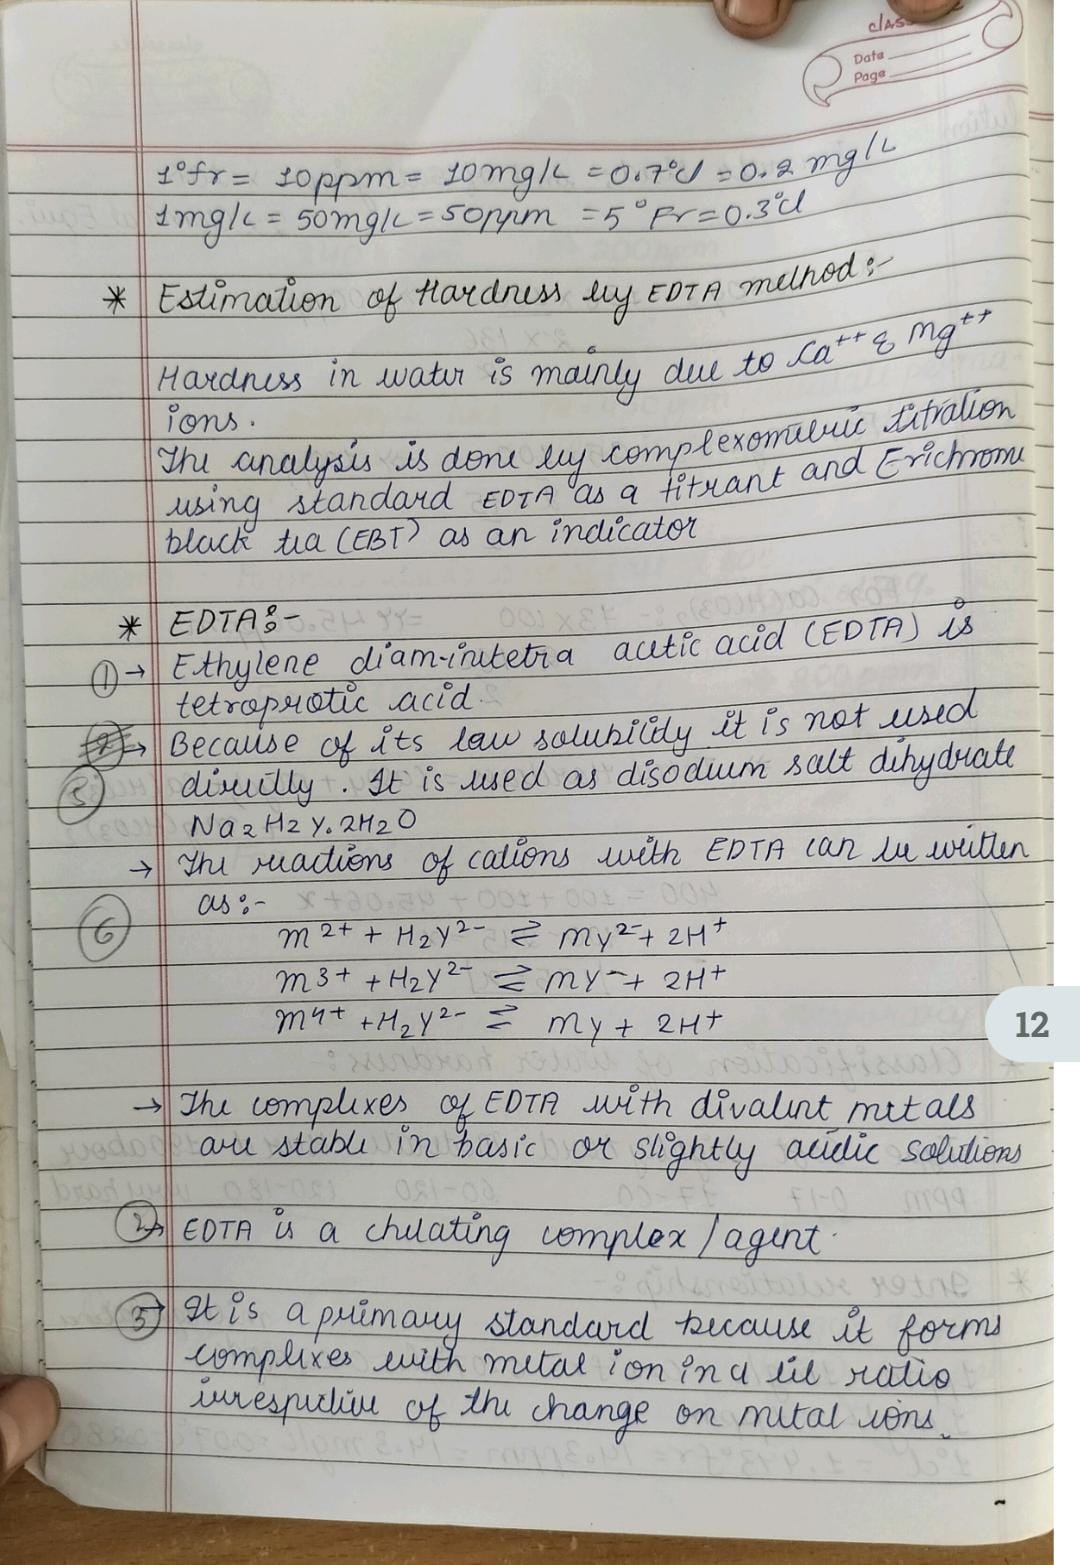 Date
Page
1°fr = 10ppm = 10mg/L = 0.7°cl = 0.2 mg/L
1mg/L = 50mg/L = 50ppm = 5°Fr = 0.3°cl
* Estimation of Hardness by EDTA method :-
Hardness in water is mainly due to Ca++ & Mg++
ions.
The analysis is done by complexometric titration
using standard EDTA as a titrant and Erichrome
black tea (EBT) as an indicator
* EDTA :-
① → Ethylene diam-inetetra acetic acid (EDTA) is
tetroprotic acid.
→ Because of its law solubility it is not used
⑤ directly. It is used as disodium salt dihydrate
Na2H2Y.2H2O
→ The reactions of cations with EDTA can be written
as :-
⑥
m2+ + H2Y2- ⇌ my2- + 2H+
m3+ + H2Y2- ⇌ my- + 2H+
m4+ + H2Y2- ⇌ my + 2H+
12
→ The complexes of EDTA with divalent metals
are stable in basic or slightly acidic solutions
② → EDTA is a chelating complex / agent.
③ → It is a primary standard because it forms
complexes with metal ion in a 1:1 ratio
irrespective of the change on metal ions.